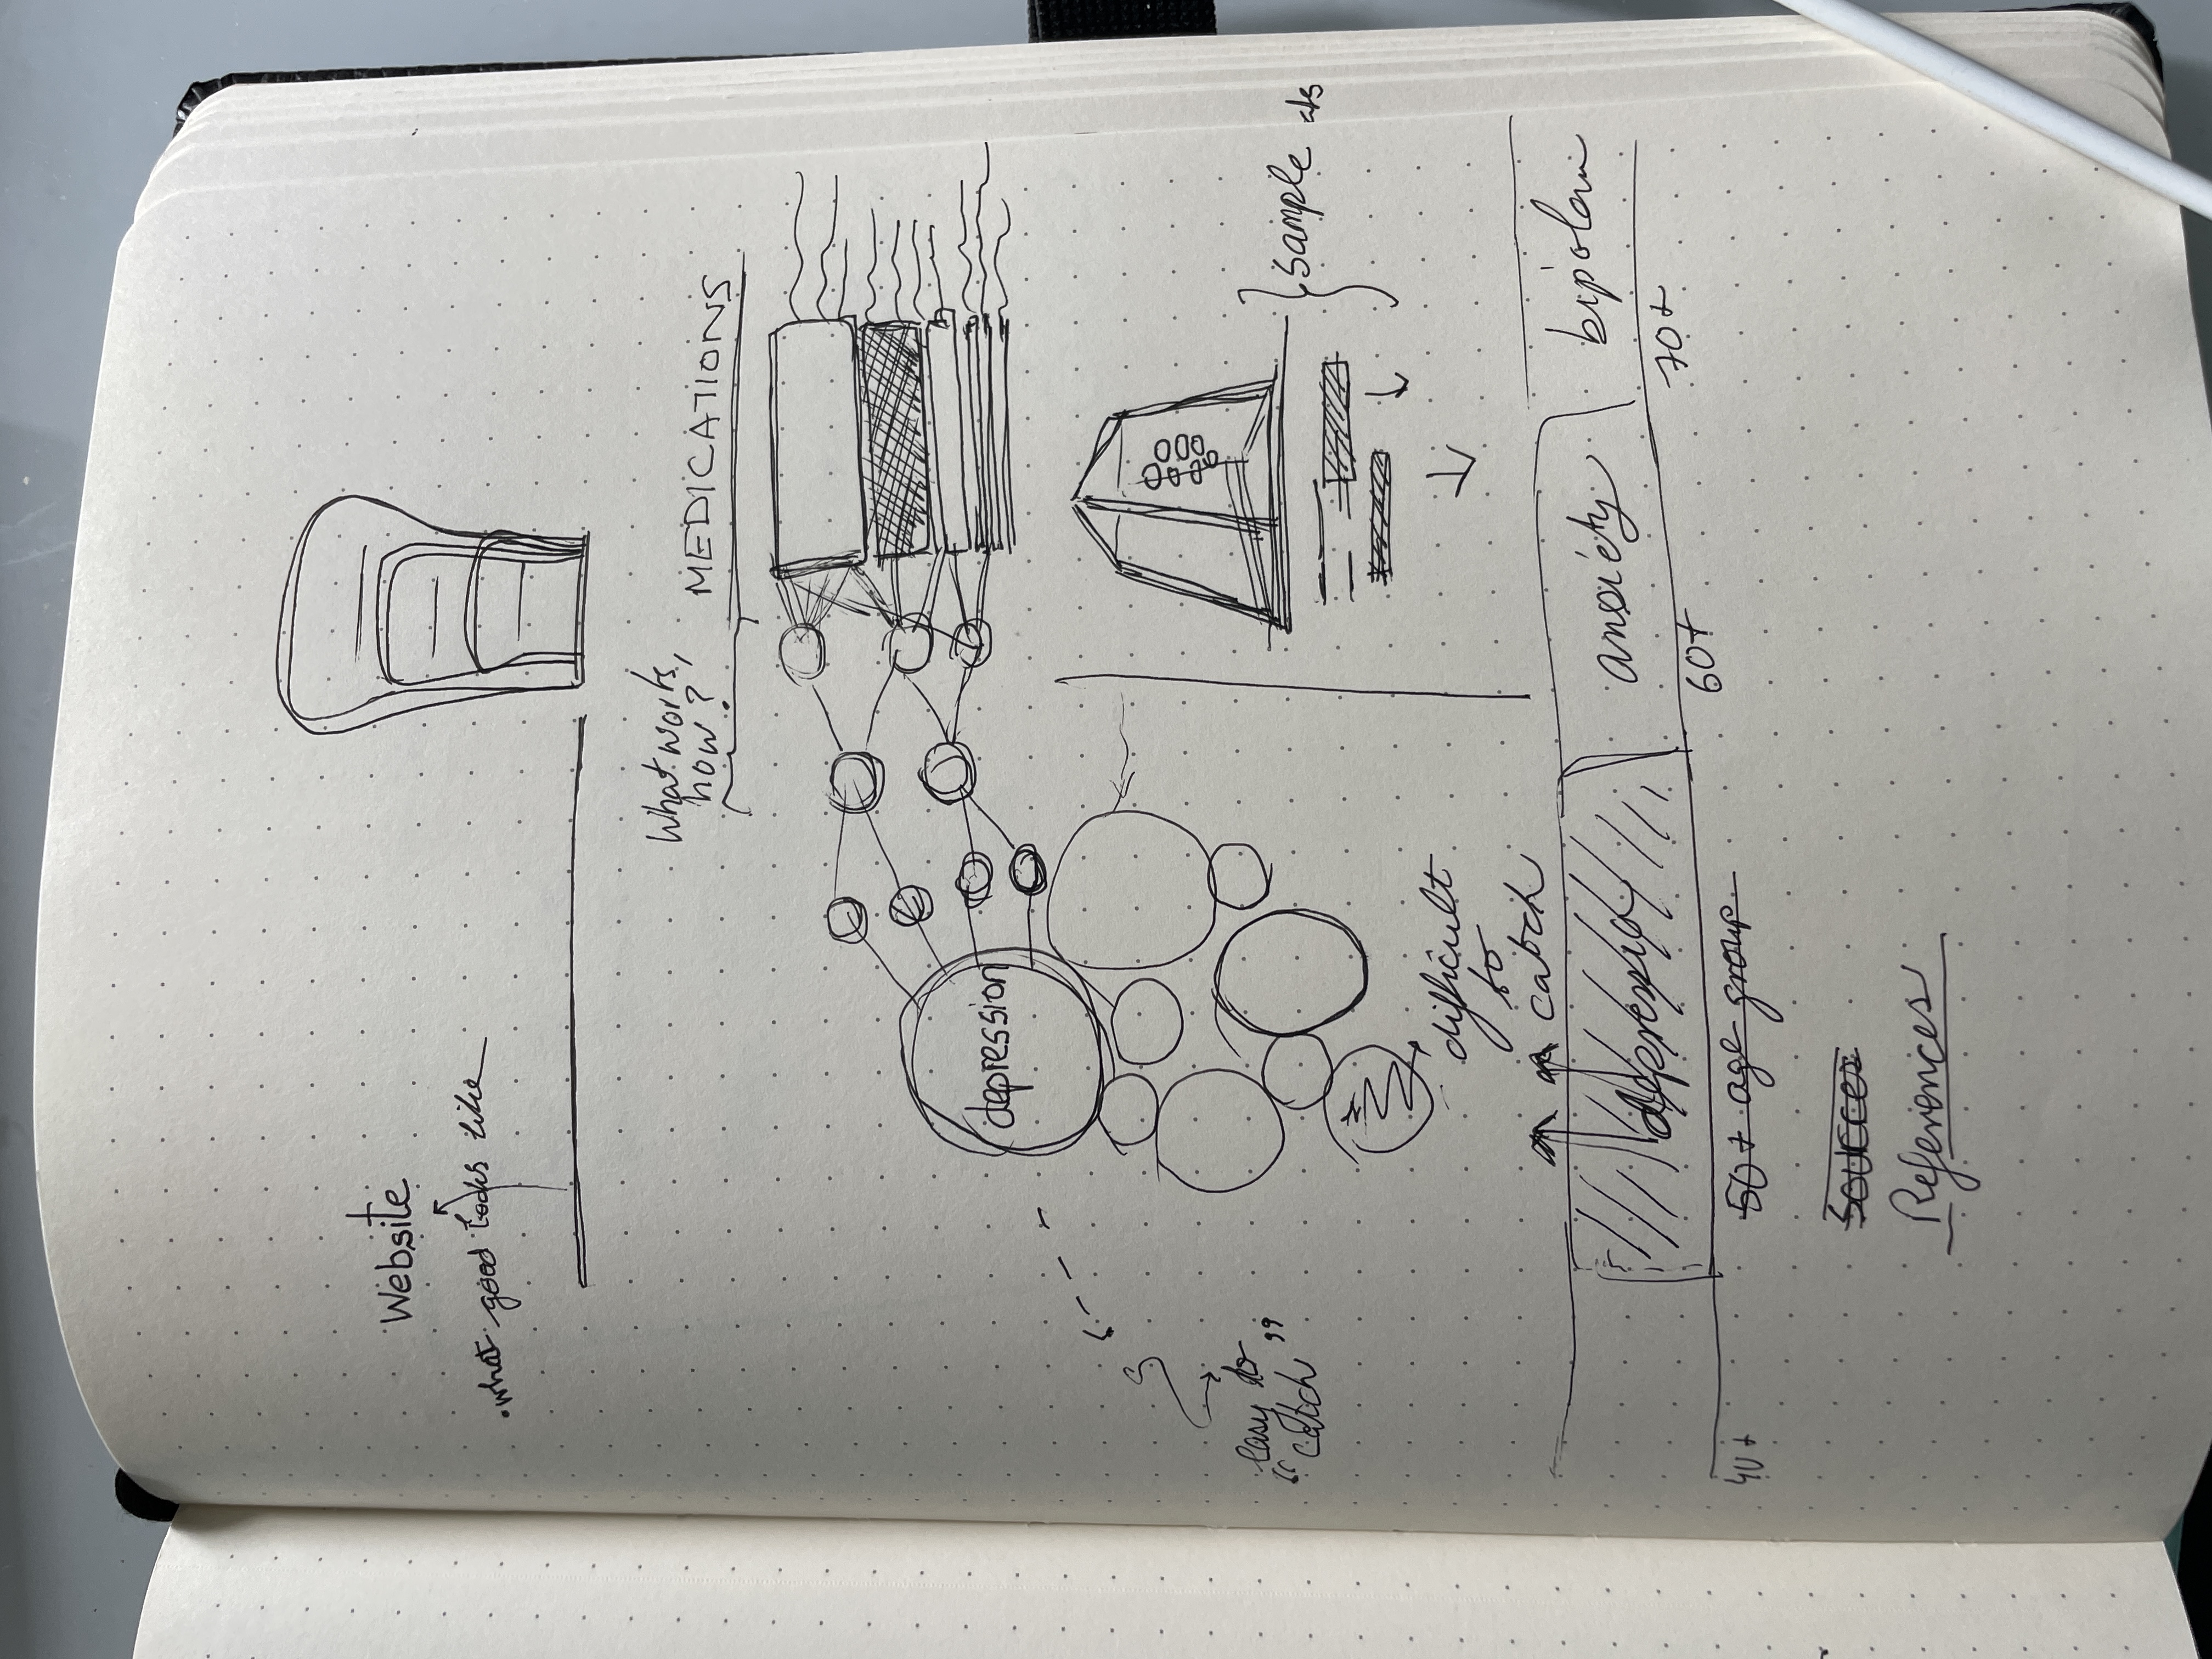 Website
•what good looks like
What works,
how?
MEDICATIONS
depression
easy to
"catch"
sample
difficult
to
catch
depression
anxiety
bipolar
40+
50+ age group
60+
70+
Sources
References